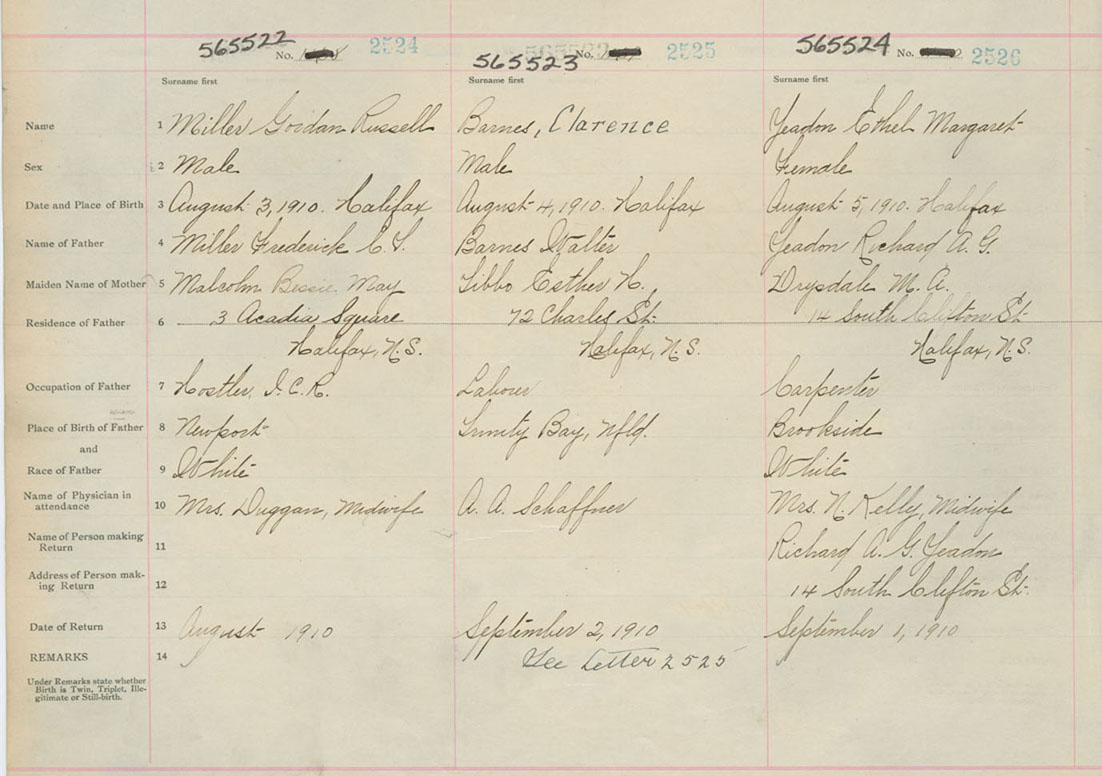 565522 No. 2524 565523 No. 2525 565524 No. 2526
Surname first Surname first Surname first
Name 1 Miller Gordan Russell Barnes, Clarence Yeadon Ethel Margaret
Sex 2 Male Male Female
Date and Place of Birth 3 August 3, 1910. Halifax August 4, 1910. Halifax August 5, 1910. Halifax
Name of Father 4 Miller Frederick C. S. Barnes Walter Yeadon Richard A. G.
Maiden Name of Mother 5 Malcolm Bessie May Tibbo Esther H. Drysdale M. A.
Residence of Father 6 3 Acadia Square 72 Charles St. 14 South Clifton St.
Halifax, N.S. Halifax, N.S. Halifax, N.S.
Occupation of Father 7 Hostler, I.C.R. Labour Carpenter
Place of Birth of Father 8 Newport Trinity Bay, Nfld. Brookside
and
Race of Father 9 White White
Name of Physician in
attendance 10 Mrs. Duggan, Midwife A. A. Schaffner Mrs. N. Kelly, Midwife
Name of Person making
Return 11 Richard A. G. Yeadon
Address of Person mak-
ing Return 12 14 South Clifton St.
Date of Return 13 August 1910 September 2, 1910 September 1, 1910
REMARKS 14 See Letter 2525
Under Remarks state whether
Birth is Twin, Triplet, Ille-
gitimate or Still-birth.